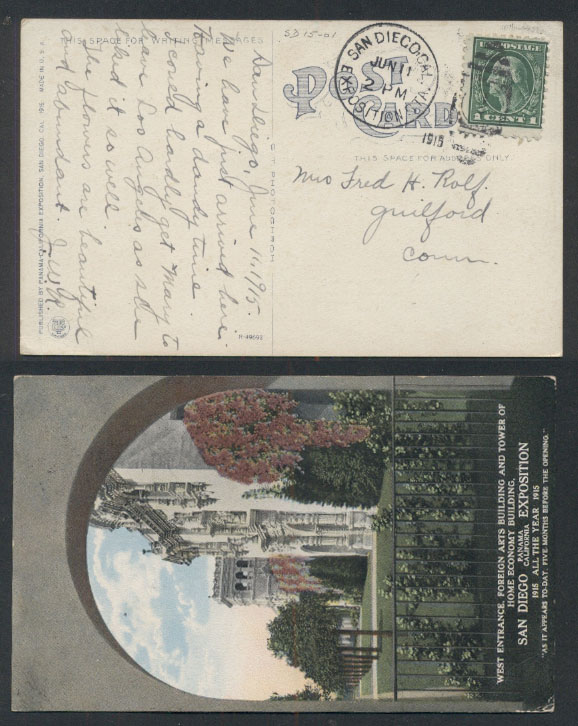 SD 15-01
THIS SPACE FOR WRITING MESSAGES
San Diego, June 11, 1915.
We have just arrived here.
Having a dandy time.
I could hardly get Mary to
leave Los Angeles as she
liked it so well.
The flowers are beautiful
and abundant. J.W.R.
PUBLISHED BY PANAMA-CALIFORNIA EXPOSITION, SAN DIEGO, CAL. 1915 MADE IN U.S.A.
R-49692
POST CARD
THIS SPACE FOR ADDRESS ONLY
SAN DIEGO, CAL.
JUN 11
2 PM
1915
EXPOSITION STA.
U.S. POSTAGE
1 CENT 1
Mrs Fred H. Rolf.
Guilford
Conn.
WEST ENTRANCE, FOREIGN ARTS BUILDING AND TOWER OF
HOME ECONOMY BUILDING,
SAN DIEGO PANAMA CALIFORNIA EXPOSITION
1915 ALL THE YEAR 1915
"AS IT APPEARS TO-DAY, FIVE MONTHS BEFORE THE OPENING."